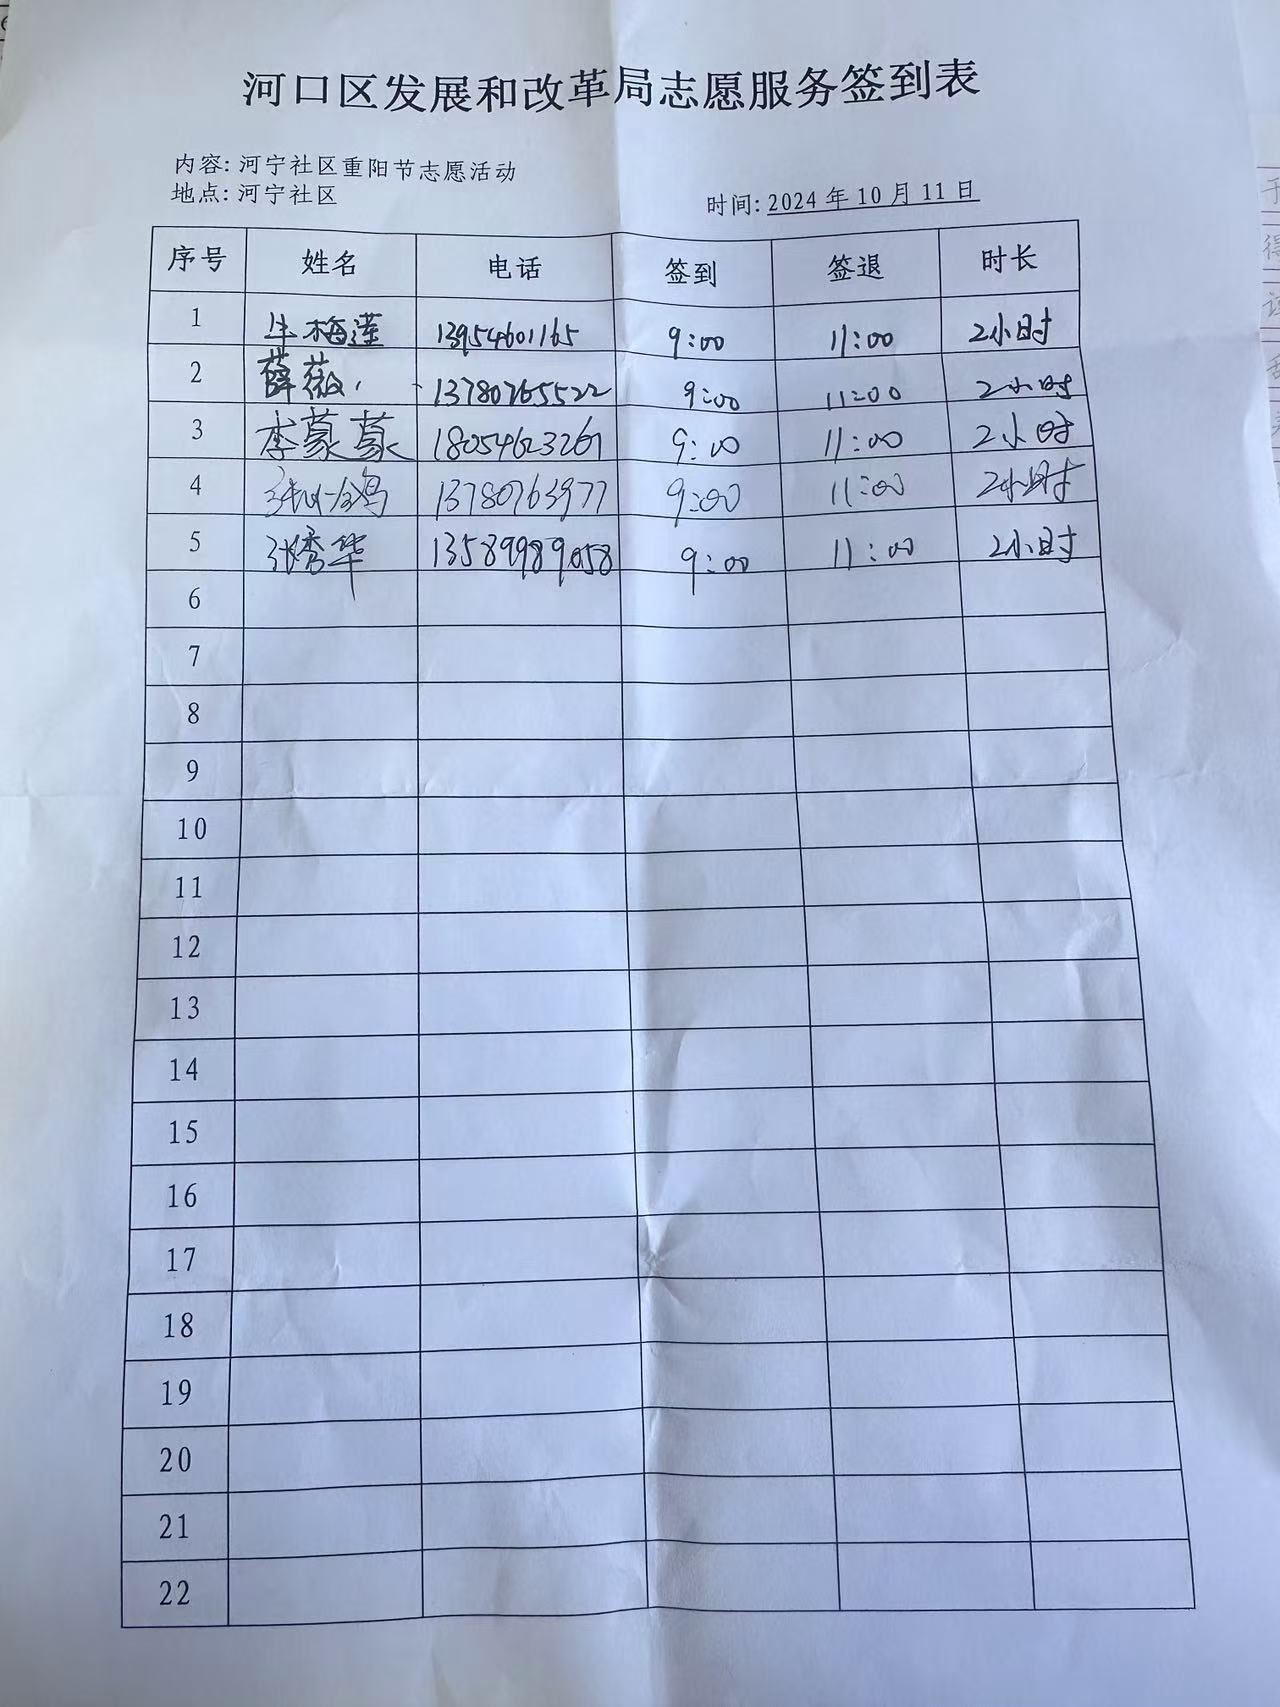 河口区发展和改革局志愿服务签到表
内容: 河宁社区重阳节志愿活动
地点: 河宁社区
时间: 2024 年 10 月 11 日
序号 姓名 电话 签到 签退 时长
1 牛梅莲 13954601165 9:00 11:00 2小时
2 薛薇 13780765522 9:00 11:00 2小时
3 李蒙蒙 18054623261 9:00 11:00 2小时
4 13780763977 9:00 11:00 2小时
5 张秀华 13589989058 9:00 11:00 2小时
6
7
8
9
10
11
12
13
14
15
16
17
18
19
20
21
22